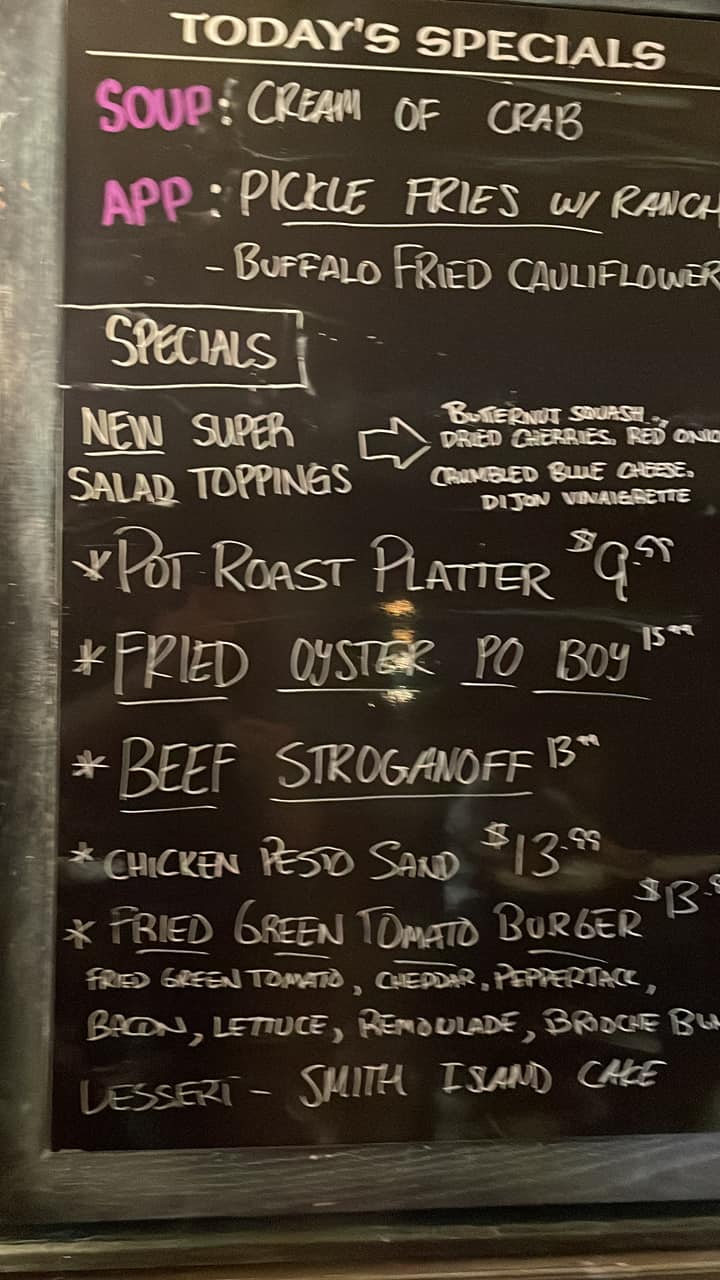 TODAY'S SPECIALS
SOUP: CREAM OF CRAB
APP: PICKLE FRIES W/ RANCH
- BUFFALO FRIED CAULIFLOWER
SPECIALS
NEW SUPER
SALAD TOPPINGS
BUTTERNUT SQUASH,
DRIED CHERRIES, RED ONIO
CRUMBLED BLUE CHEESE,
DIJON VINAIGRETTE
* POT ROAST PLATTER $9.99
* FRIED OYSTER PO BOY 15.99
* BEEF STROGANOFF 13.99
* CHICKEN PESTO SAND $13.99
* FRIED GREEN TOMATO BURGER $13.9
FRIED GREEN TOMATO, CHEDDAR, PEPPERJACK,
BACON, LETTUCE, REMOULADE, BRIOCHE BU
DESSERT - SMITH ISLAND CAKE